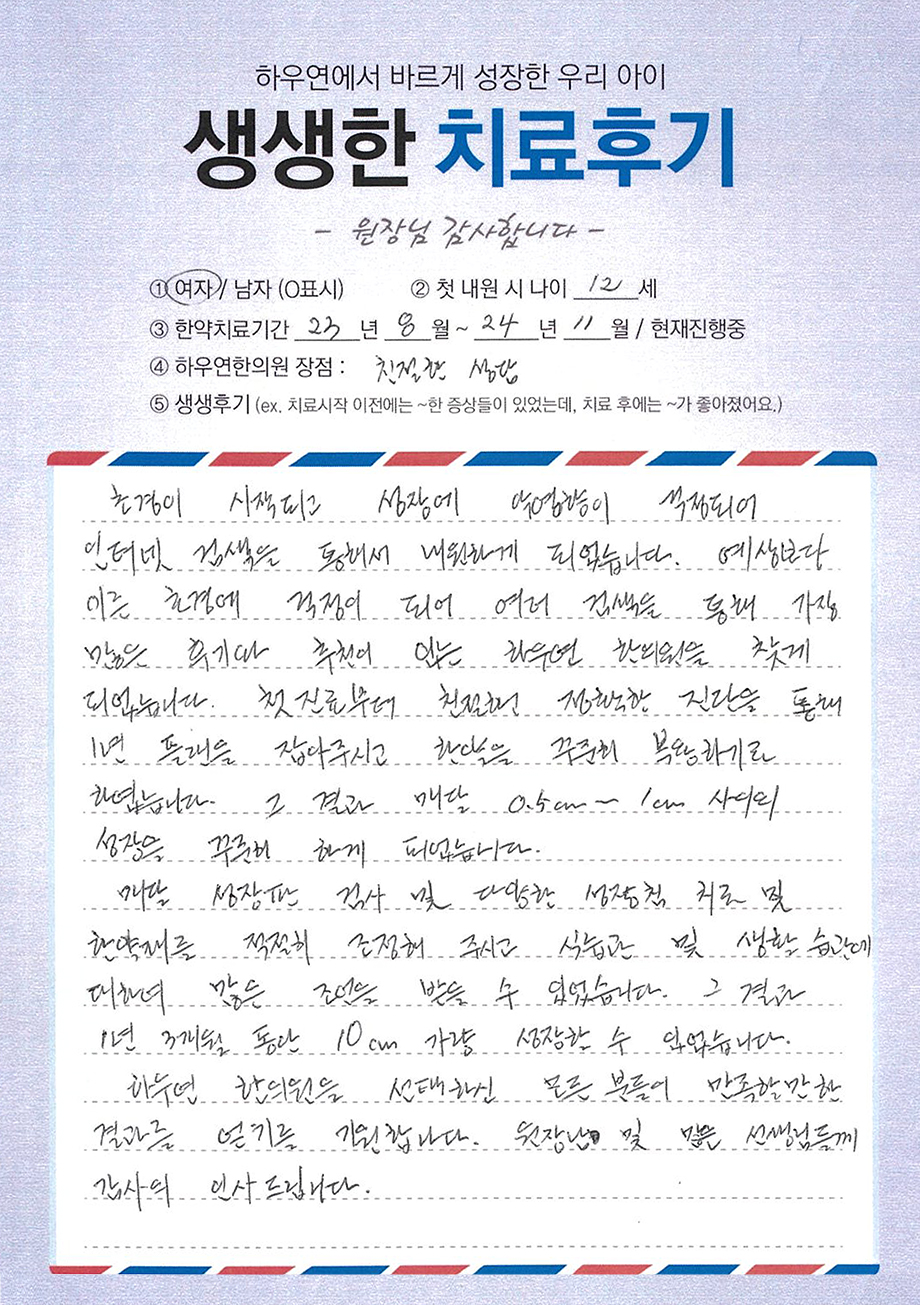 하우연에서 바르게 성장한 우리 아이
생생한 치료후기
- 원장님 감사합니다 -
① 여자 / 남자 (O표시) ② 첫 내원 시 나이 12 세
③ 한약치료기간 23 년 8 월 ~ 24 년 11 월 / 현재진행중
④ 하우연한의원 장점 : 친절한 상담
⑤ 생생후기 (ex. 치료시작 이전에는 ~한 증상들이 있었는데, 치료 후에는 ~가 좋아졌어요.)
초경이 시작되고 성장에 악영향이 걱정되어
인터넷 검색을 통해서 내원하게 되었습니다. 예상보다
이른 초경에 걱정이 되어 여러 검색을 통해 가장
많은 후기와 추천이 있는 하우연 한의원을 찾게
되었습니다. 첫 진료부터 친절하고 정확한 진단을 통해
1년 플랜을 잡아주시고 한약을 꾸준히 복용하기로
하였습니다. 그 결과 매달 0.5cm ~ 1cm 사이의
성장을 꾸준히 하게 되었습니다.
매달 성장판 검사 및 다양한 성장침 치료 및
한약재를 적절히 조정해 주시고 식습관 및 생활 습관에
대하여 많은 조언을 받을 수 있었습니다. 그 결과
1년 3개월 동안 10cm 가량 성장할 수 있었습니다.
하우연 한의원을 선택하신 모든 분들이 만족할만한
결과를 얻기를 기원합니다. 원장님 및 많은 선생님들께
감사의 인사드립니다.